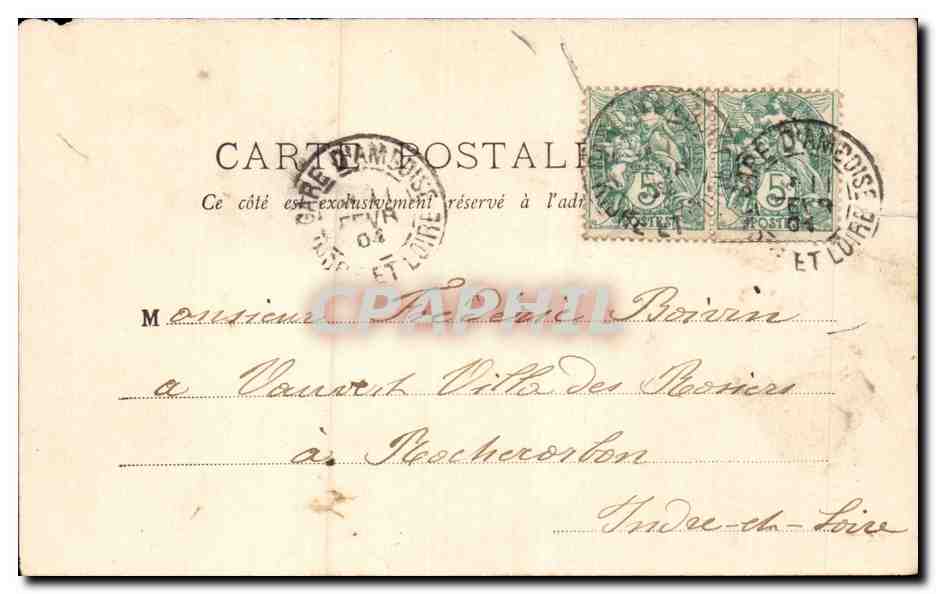 CARTE POSTALE
Ce côté est exclusivement réservé à l'adr
GARE D'AMBOISE
FEVR
04
ET LOIRE
5
POSTES
INDRE ET
5
POSTES
GARE D'AMBOISE
04
ET LOIRE
CPAPHIL
Monsieur Frédéric Boivin
a Vauvert Villa des Rosiers
à Rochecorbon
Indre-et-Loire